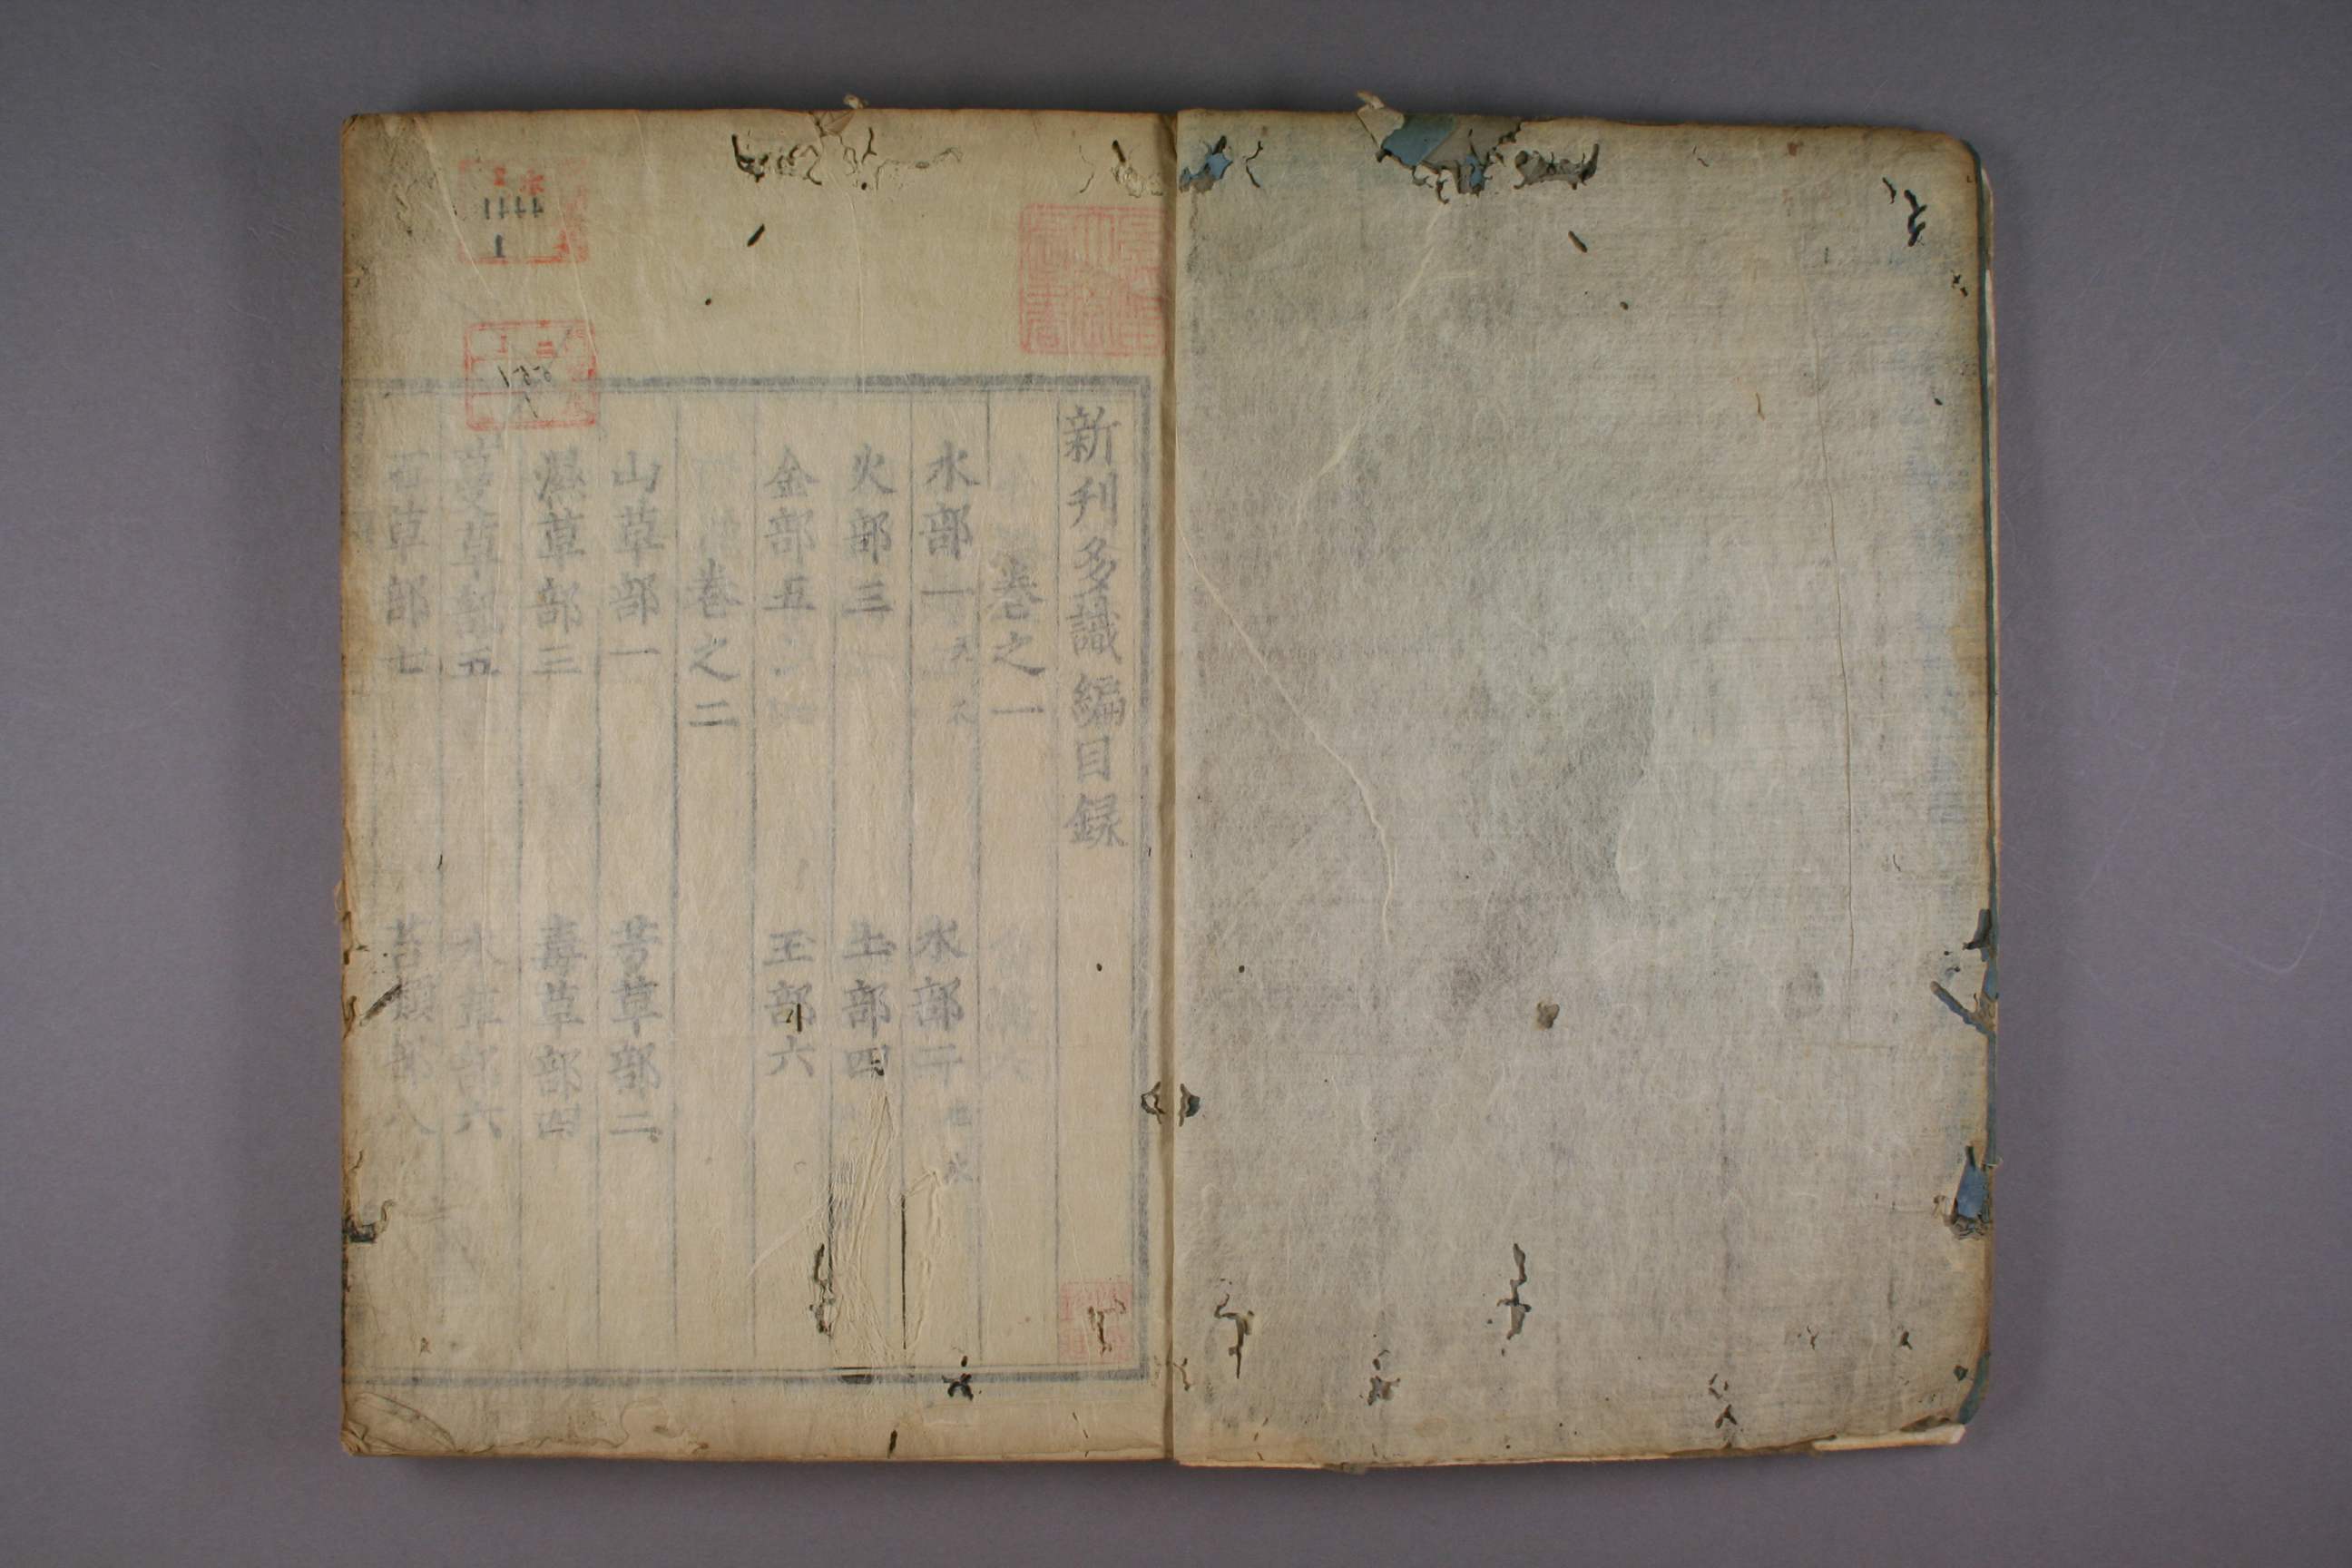 新刊多識編目録
卷之一
水部一 水部二
火部三 土部四
金部五 玉部六
卷之二
山草部一 芳草部二
濕草部三 毒草部四
蔓草部五 水草部六
石草部七 苔類部八